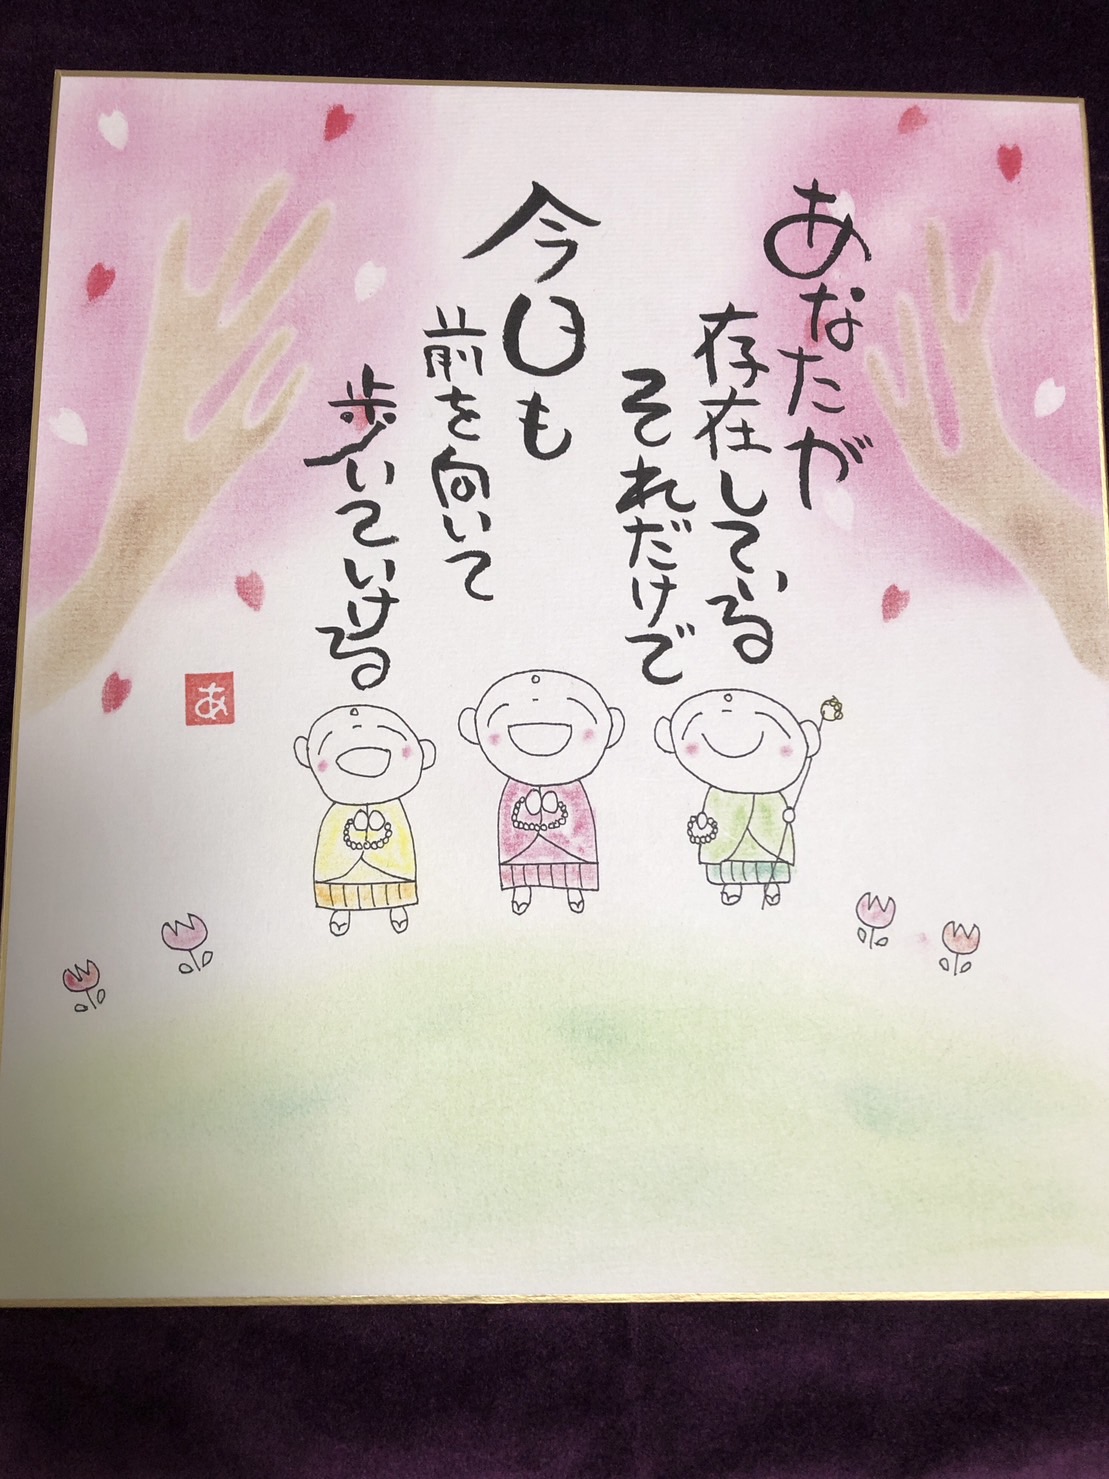 あなたが
存在している
それだけで
今日も
前を向いて
歩いていける
あ